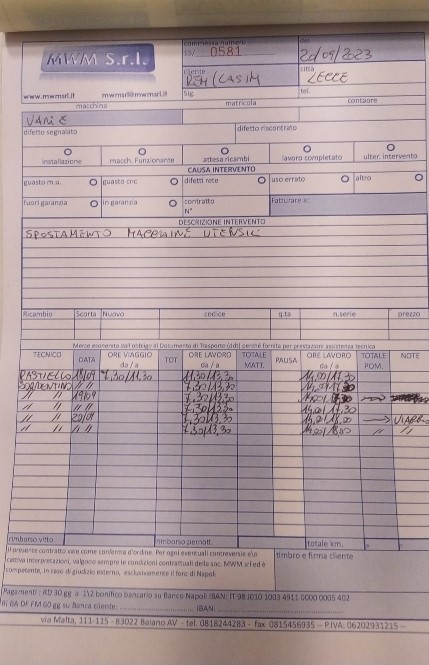 MWM S.r.l.
commessa numero
0581
del
20/09/2023
cliente
REM/CASIM
città
LECCE
Sig.
tel.
www.mwmsrl.it mwmsrl@mwmsrl.it
macchina matricola contaore
VARIE
difetto segnalato difetto riscontrato
installazione macch. Funzionante attesa ricambi lavoro completato ulter. intervento
CAUSA INTERVENTO
guasto m.u. guasto cnc difetti rete uso errato altro
fuori garanzia in garanzia contratto N° Fatturare a:
DESCRIZIONE INTERVENTO
SPOSTAMENTO MACCHINE UTENSILI
Ricambio Scorta Nuovo codice q.ta n.serie prezzo
TECNICO DATA ORE VIAGGIO da / a TOT ORE LAVORO da / a TOTALE MATT. PAUSA ORE LAVORO da / a TOTALE POM. NOTE
18/09 7,30/11,30 11,30/13,30
SORRENTINO // // 7,30/13,30
// // 19/09 7,30/13,30
// // // // 7,30/13,30 14,00/17,30
// // 20/09 7,30/13,30
// // // // 7,30/13,30 14,00/18,00 // //
rimborso vitto rimborso pernott. totale km.
Il presente contratto vale come conferma d'ordine. Per ogni eventuali controversie e\o
cattiva interpretazioni, valgono sempre le condizioni contrattuali della soc. MWM srl ed è
competente, in caso di giudizio esterno, esclusivamente il foro di Napoli
timbro e firma cliente
Pagamenti : RD 30 gg a 1\2 bonifico bancario su Banco Napoli IBAN: IT 98 J010 1003 4911 0000 0005 402
RI BA DF FM 60 gg su Banca cliente: IBAN:
via Malta, 111-115 - 83022 Baiano AV - tel. 0818244283 - fax 0815456935 - P.IVA: 06202931215